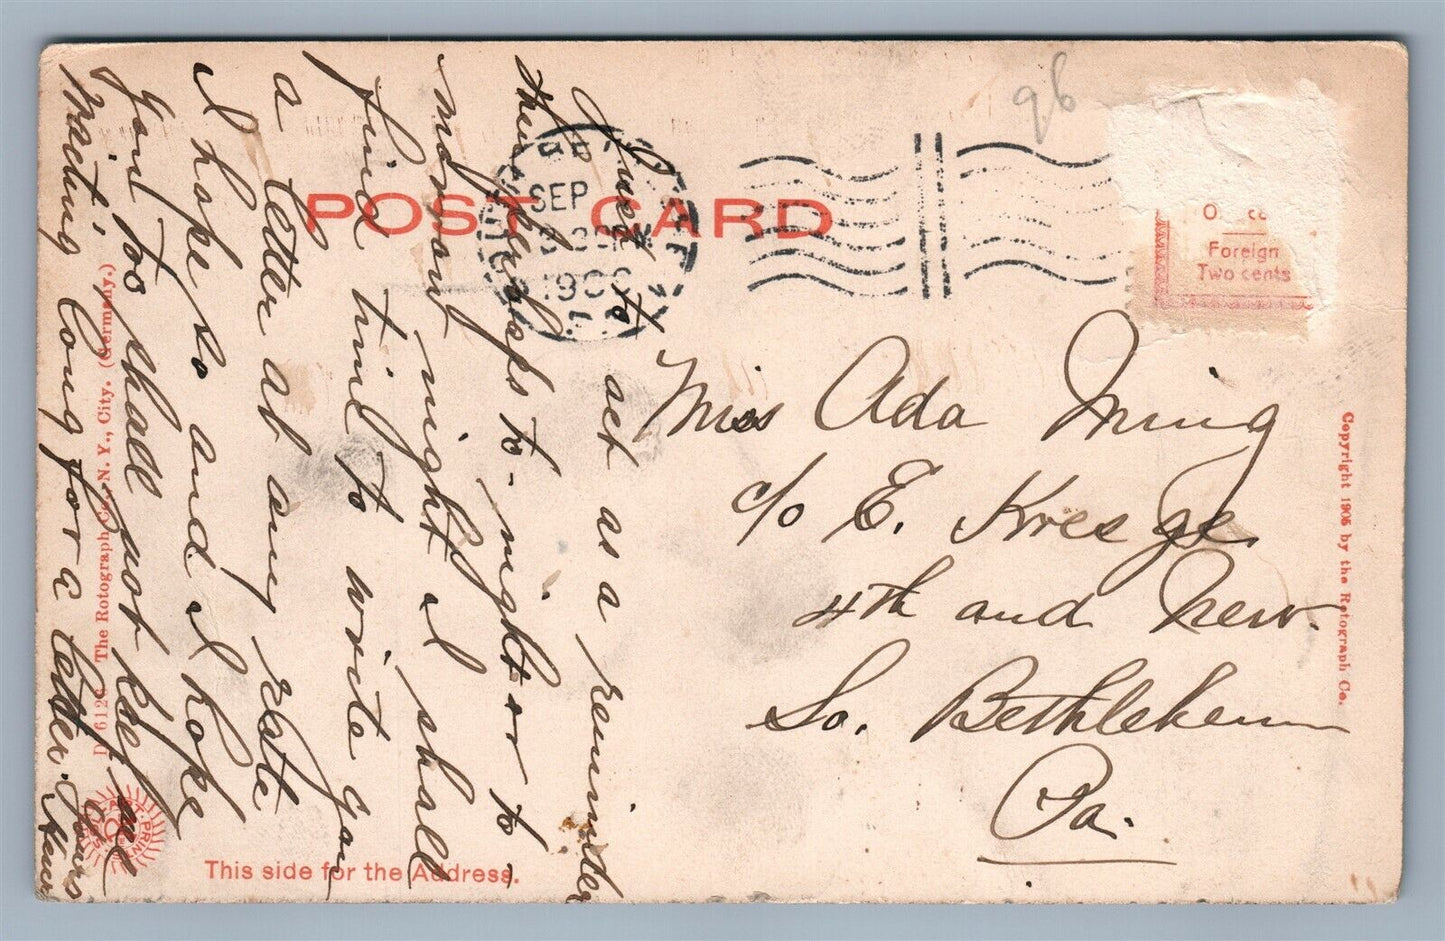 POST CARD
SEP
1906
Foreign
Two cents
96
Miss Ada Ming
c/o E. Kresge
4th and New.
So. Bethlehem
Pa.
Just to act as a reminder
then perhaps to-night or to-
morrow night I shall
find time to write you
a letter at any rate
I hope so and I hope
you too shall not keep me
waiting long for a letter.
Yours
This side for the Address.
D 6126 The Rotograph Co., N. Y., City. (Germany.)
Copyright 1905 by the Rotograph Co.